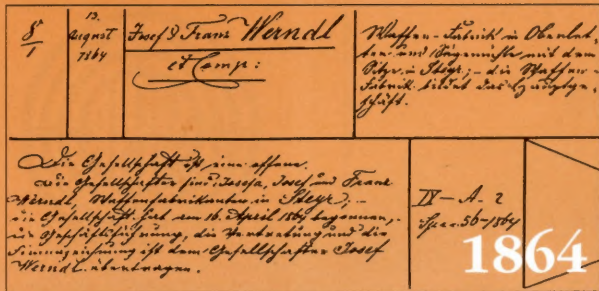 8
1
13.
August
1864
Josef & Franz Werndl
et Comp:
Waffen-Fabrik in Oberlet-
ten und Sägemühle mit dem
Sitze in Steyr; – die Waffen-
Fabrik bildet das Hauptge-
schäft.
Die Gesellschaft ist eine offene.
Die Gesellschafter sind: Josefa, Josef und Franz
Werndl, Waffenfabrikanten in Steyr; –
die Gesellschaft hat am 16. April 1864 begonnen; –
die Geschäftsführung, die Vertretung und die
Firmazeichnung ist dem Gesellschafter Josef
Werndl übertragen.
IV – A. 2
56-1864
1864